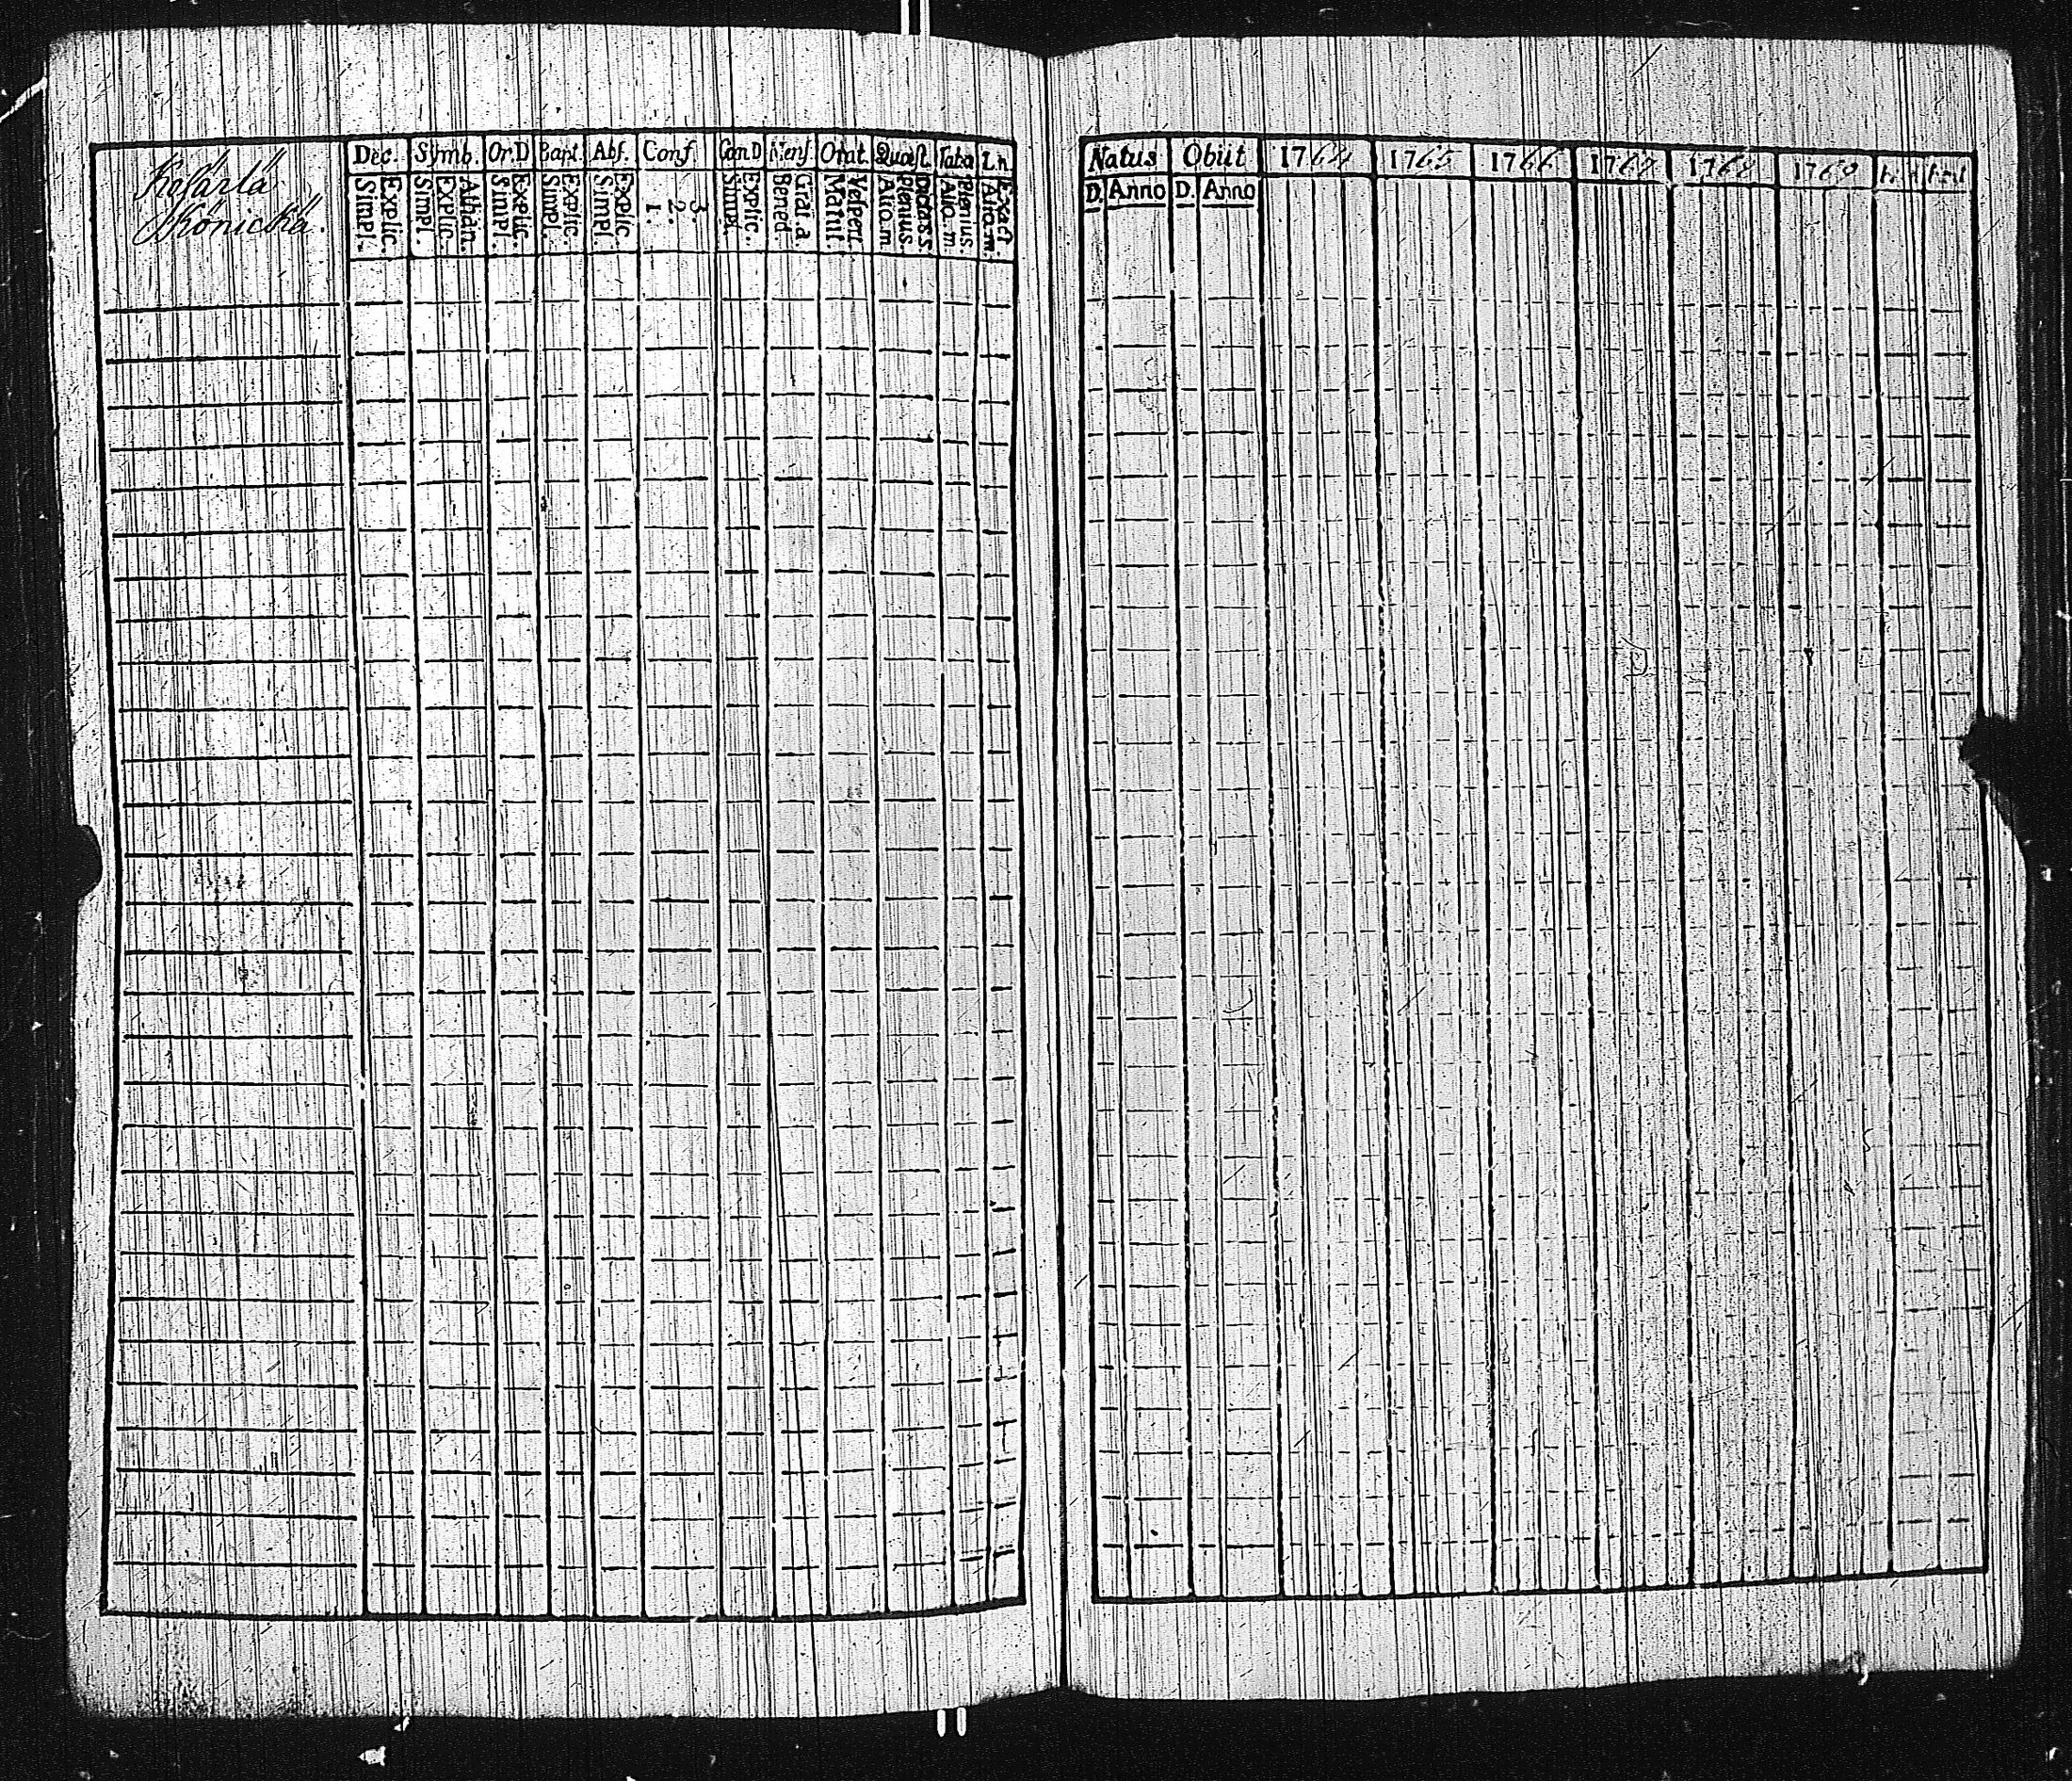 Kesärlä
Könickä.
Dec. Symb. Or.D Bapt. Abs. Conf. Can.D Mens. Orat. Quæst Taba Ln
Explic. Simpl. Athan. Explic. Simpl. Explic. Simpl. Explic. Simpl. Explic. Simpl. 3. 2. 1. Explic. Simpl. Grat. a Bened. Vespert. Matut. Dictass. Plenius. Aliq. m. Plenius. Aliq. m. Exact Aliq. m.
Natus Obiit 1764 1765 1766 1767 1768 1769
D. Anno D. Anno